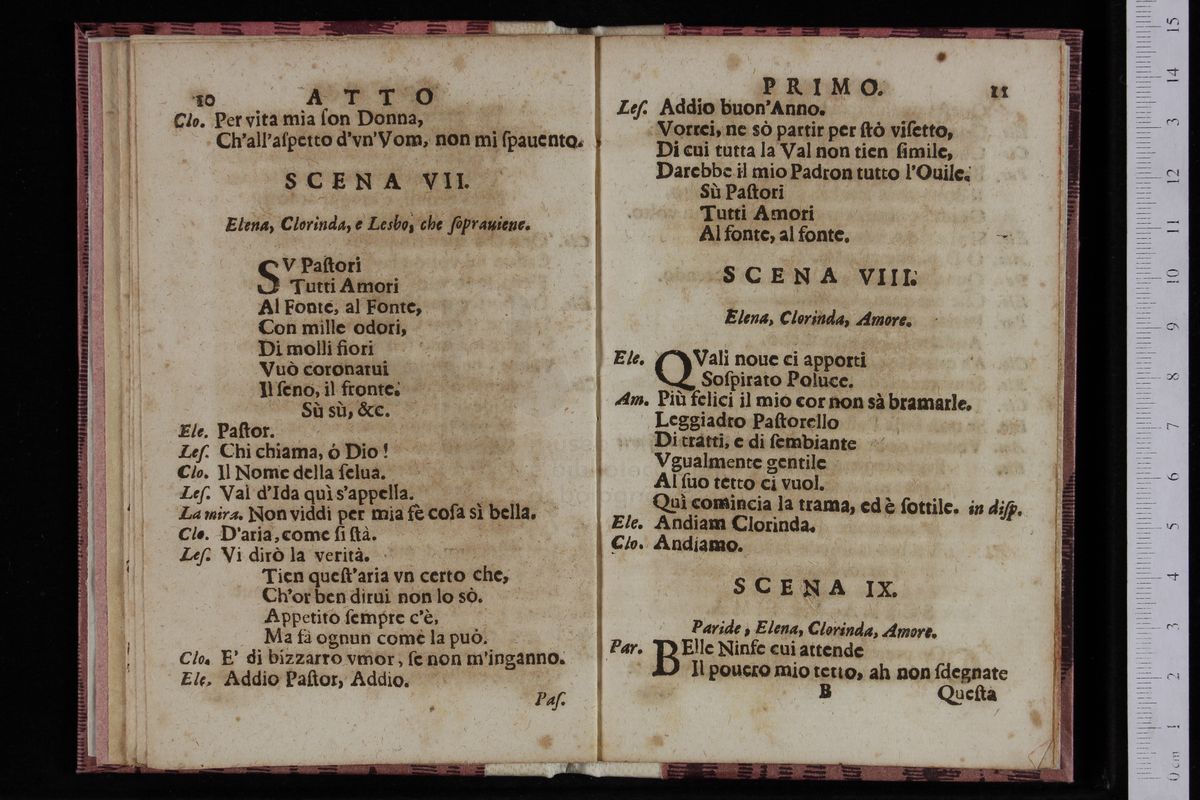 10 ATTO
Clo. Per vita mia ſon Donna,
Ch'all'aſpetto d'vn'Vom, non mi ſpauento.
SCENA VII.
Elena, Clorinda, e Lesbo, che ſoprauiene.
SV Paſtori
Tutti Amori
Al Fonte, al Fonte,
Con mille odori,
Di molli fiori
Vuò coronarui
Il ſeno, il fronte.
Sù sù, &c.
Ele. Paſtor.
Leſ. Chi chiama, ó Dio!
Clo. Il Nome della ſelua.
Leſ. Val d'Ida quì s'appella.
La mira. Non viddi per mia fè coſa sì bella.
Clo. D'aria, come ſi ſtà.
Leſ. Vi dirò la verità.
Tien queſt'aria vn certo che,
Ch'or ben dirui non lo sò.
Appetito ſempre c'è,
Ma fà ognun come la può.
Clo. E' di bizzarro vmor, ſe non m'inganno.
Ele. Addio Paſtor, Addio.
Paſ.
PRIMO. 11
Leſ. Addio buon'Anno.
Vorrei, ne sò partir per ſtò viſetto,
Di cui tutta la Val non tien ſimile,
Darebbe il mio Padron tutto l'Ouile.
Sù Paſtori
Tutti Amori
Al fonte, al fonte.
SCENA VIII.
Elena, Clorinda, Amore.
Ele. QVali noue ci apporti
Soſpirato Poluce.
Am. Più felici il mio cor non sà bramarle.
Leggiadro Paſtorello
Di tratti, e di ſembiante
Vgualmente gentile
Al ſuo tetto ci vuol.
Quì comincia la trama, ed è ſottile. in diſp.
Ele. Andiam Clorinda.
Clo. Andiamo.
SCENA IX.
Paride, Elena, Clorinda, Amore.
Par. BElle Ninfe cui attende
Il pouero mio tetto, ah non ſdegnate
B Queſta
15
14
13
12
11
10
9
8
7
6
5
4
3
2
1
0 cm